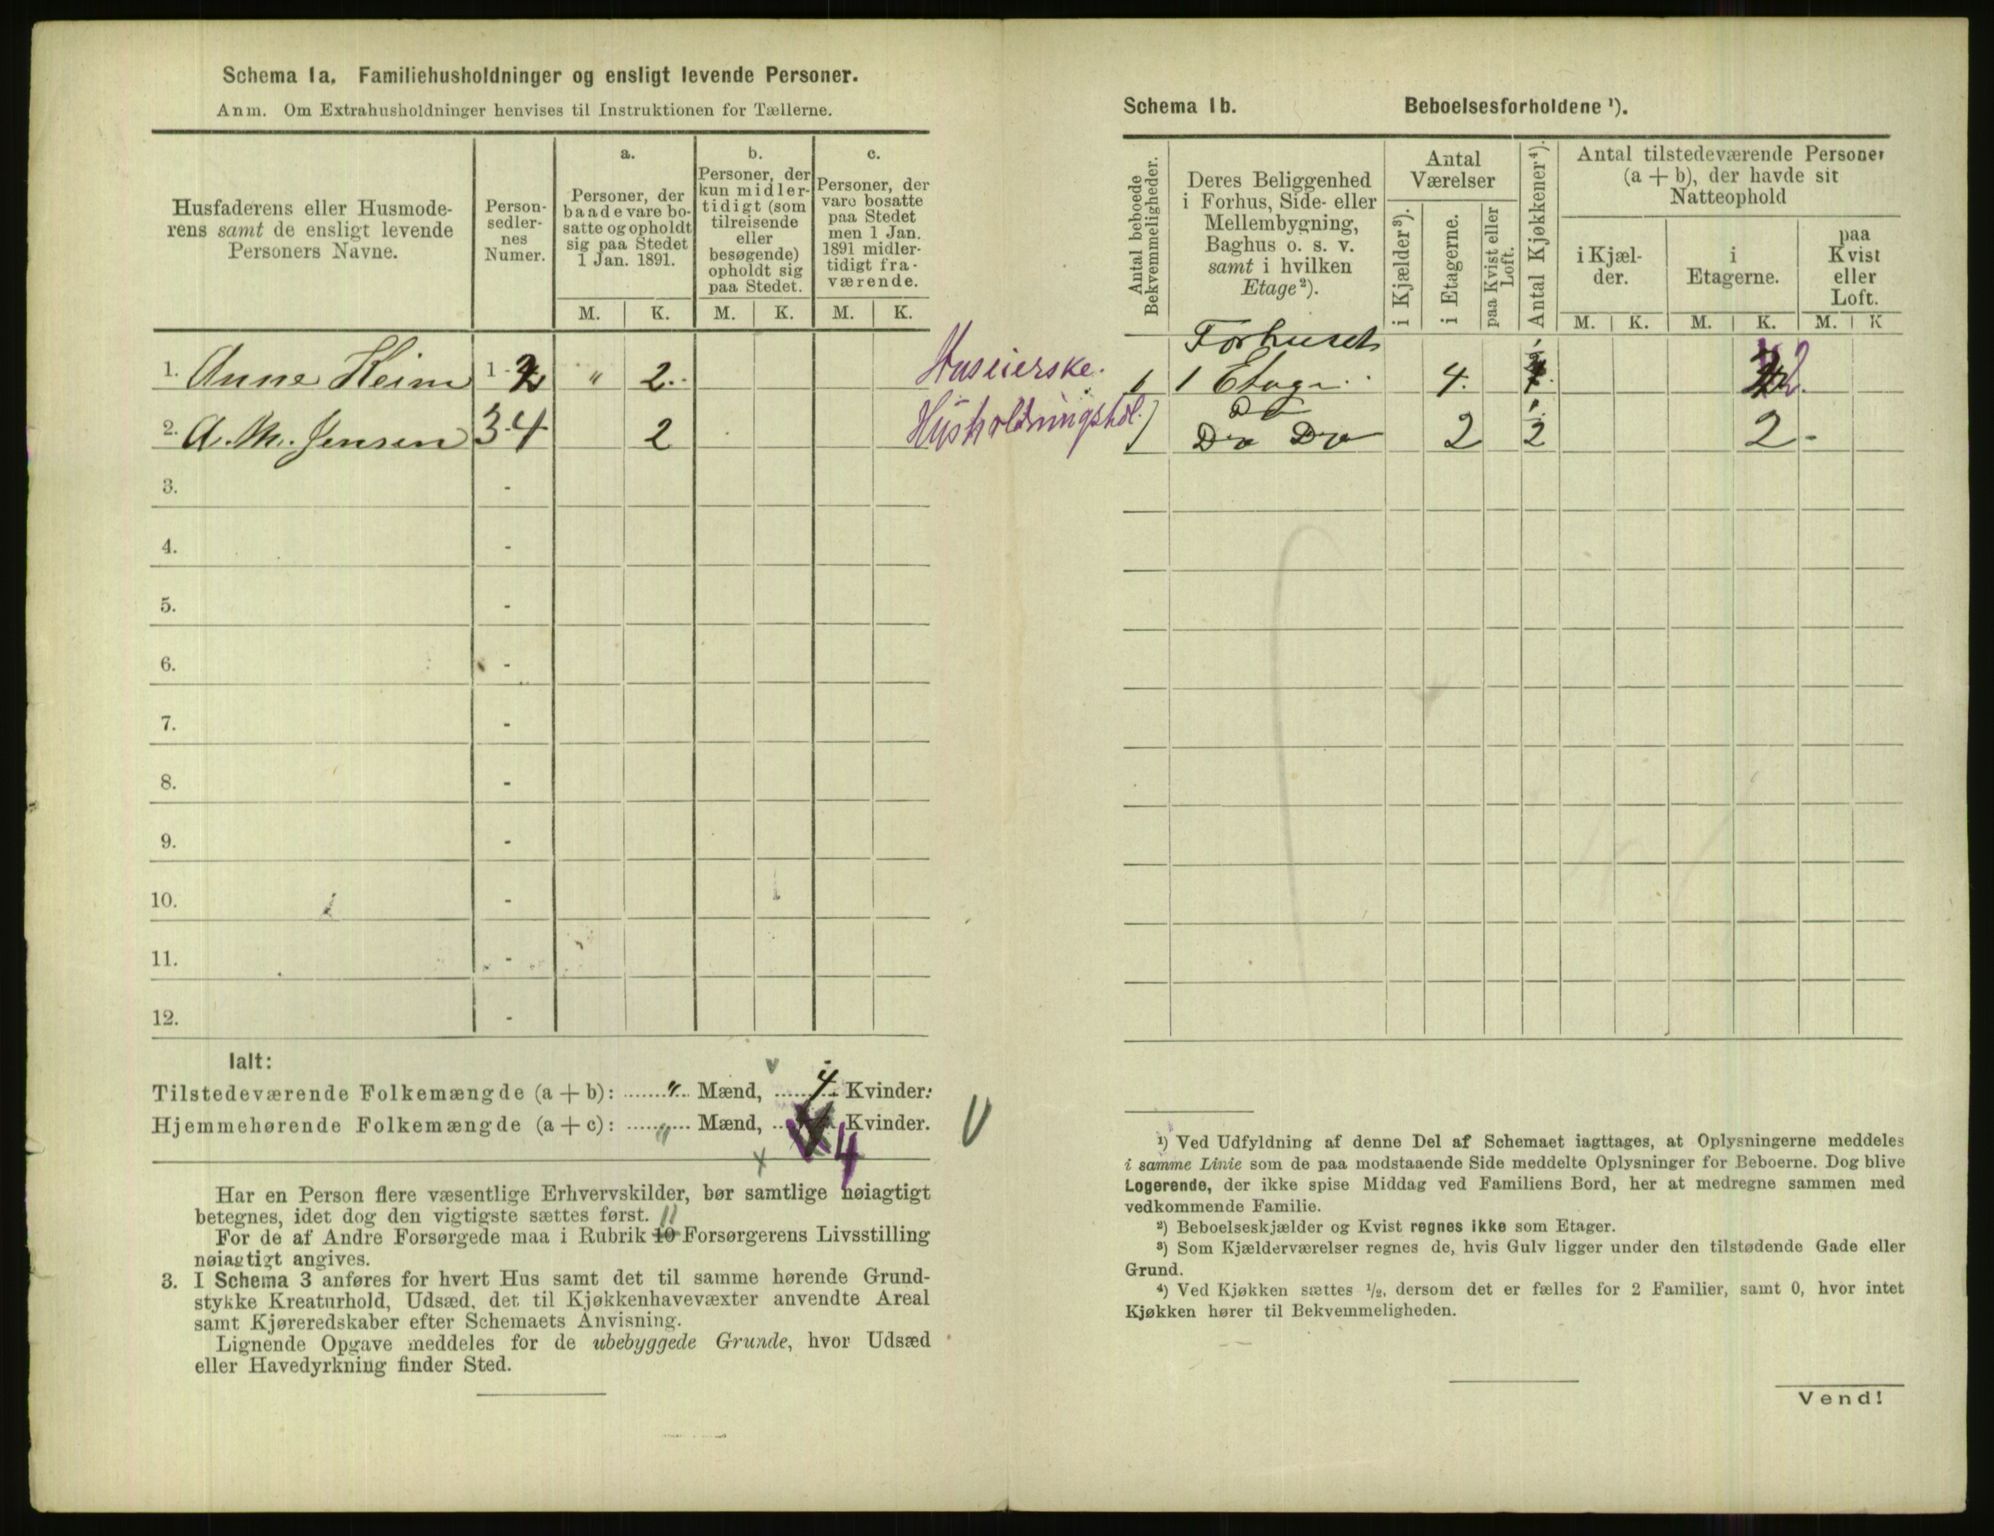 Schema 1a. Familiehusholdninger og ensligt levende Personer.
Anm. Om Extrahusholdninger henvises til Instruktionen for Tællerne.
Husfaderens eller Husmode-
rens samt de ensligt levende
Personers Navne.
Person-
sedler-
nes
Numer.
a.
Personer, der
baade vare bo-
satte og opholdt
sig paa Stedet
1 Jan. 1891.
b.
Personer, der
kun midler-
tidigt (som
tilreisende
eller
besøgende)
opholdt sig
paa Stedet.
c.
Personer, der
vare bosatte
paa Stedet
men 1 Jan.
1891 midler-
tidigt fra-
værende.
M. K. M. K. M. K.
1. Anne Heim 1-2 " 2. Huseierske.
2. A. M. Jensen 3-4 2 Husholdningshol.
3. -
4. -
5. -
6. -
7. -
8. -
9. -
10. -
11. -
12. -
Ialt:
Tilstedeværende Folkemængde (a + b): " Mænd, 4 Kvinder.
Hjemmehørende Folkemængde (a + c): " Mænd, 4 Kvinder.
Har en Person flere væsentlige Erhvervskilder, bør samtlige nøiagtigt
betegnes, idet dog den vigtigste sættes først.
11
For de af Andre Forsørgede maa i Rubrik 10 Forsørgerens Livsstilling
nøiagtigt angives.
3. I Schema 3 anføres for hvert Hus samt det til samme hørende Grund-
stykke Kreaturhold, Udsæd, det til Kjøkkenhavevæxter anvendte Areal
samt Kjøreredskaber efter Schemaets Anvisning.
Lignende Opgave meddeles for de ubebyggede Grunde, hvor Udsæd
eller Havedyrkning finder Sted.
Schema 1b. Beboelsesforholdene ¹).
Antal beboede
Bekvemmeligheder.
Deres Beliggenhed
i Forhus, Side- eller
Mellembygning,
Baghus o. s. v.
samt i hvilken
Etage²).
Antal
Værelser
i Kjælder³).
i Etagerne.
paa Kvist eller
Loft.
Antal Kjøkkener⁴).
Antal tilstedeværende Personer
(a + b), der havde sit
Natteophold
i Kjæl-
der.
i
Etagerne.
paa
Kvist
eller
Loft.
M. K. M. K. M. K
Forhuset
1 1 Etage. 4. 2.
Do
1 Do Do 2 ½ 2 -
¹) Ved Udfyldning af denne Del af Schemaet iagttages, at Oplysningerne meddeles
i samme Linie som de paa modstaaende Side meddelte Oplysninger for Beboerne. Dog blive
Logerende, der ikke spise Middag ved Familiens Bord, her at medregne sammen med
vedkommende Familie.
²) Beboelseskjælder og Kvist regnes ikke som Etager.
³) Som Kjælderværelser regnes de, hvis Gulv ligger under den tilstødende Gade eller
Grund.
⁴) Ved Kjøkken sættes ½, dersom det er fælles for 2 Familier, samt 0, hvor intet
Kjøkken hører til Bekvemmeligheden.
Vend!